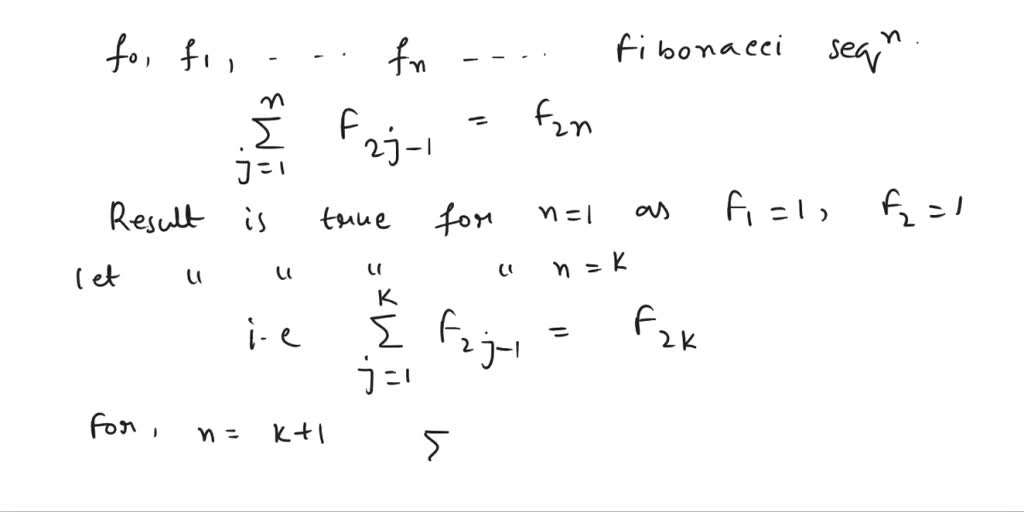 f₀, f₁, - - ·· fₙ - - - - ··· fibonacci seqⁿ.
n
Σ F₂ⱼ₋₁ = F₂ₙ
j=1
Result is true for n=1 as F₁=1, F₂=1
let " " " " n=k
k
i-e Σ F₂ⱼ₋₁ = F₂ₖ
j=1
For, n= k+1 Σ